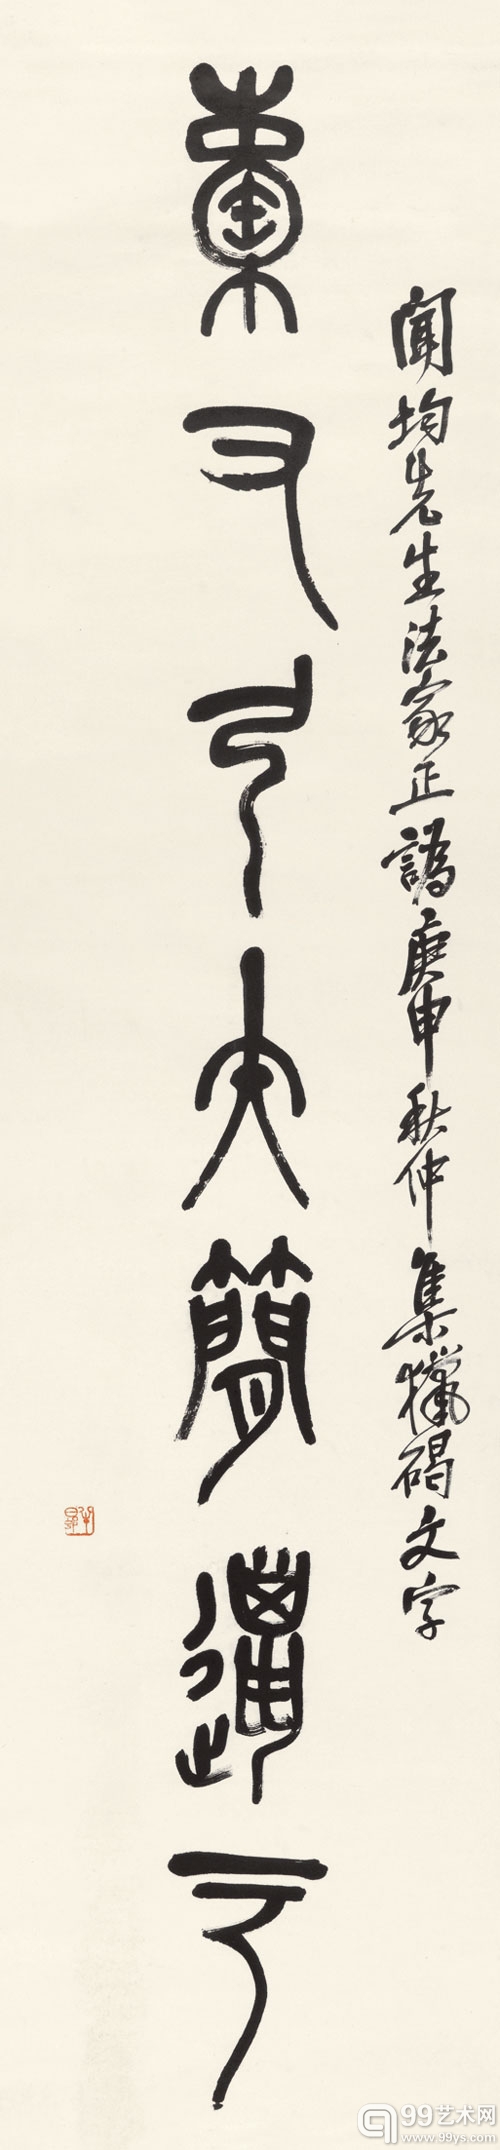 聞均先生法家正譌庚申秋仲集獵碣文字
又弓矢簡
99艺术网
www.99ys.com